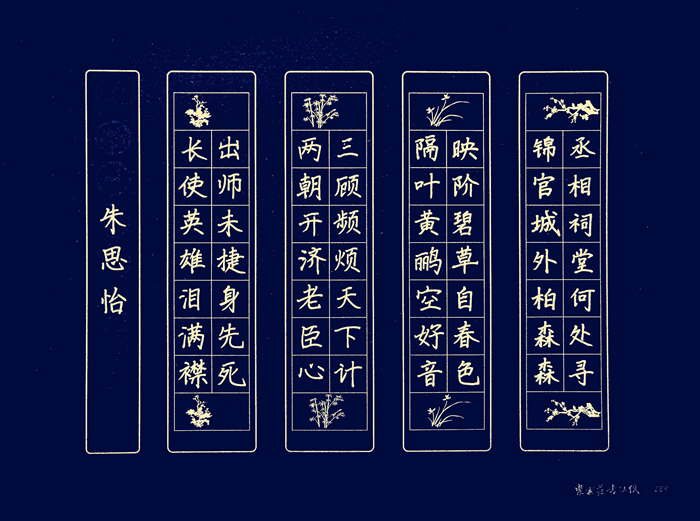 丞相祠堂何处寻
锦官城外柏森森
映阶碧草自春色
隔叶黄鹂空好音
三顾频烦天下计
两朝开济老臣心
出师未捷身先死
长使英雄泪满襟
朱思怡